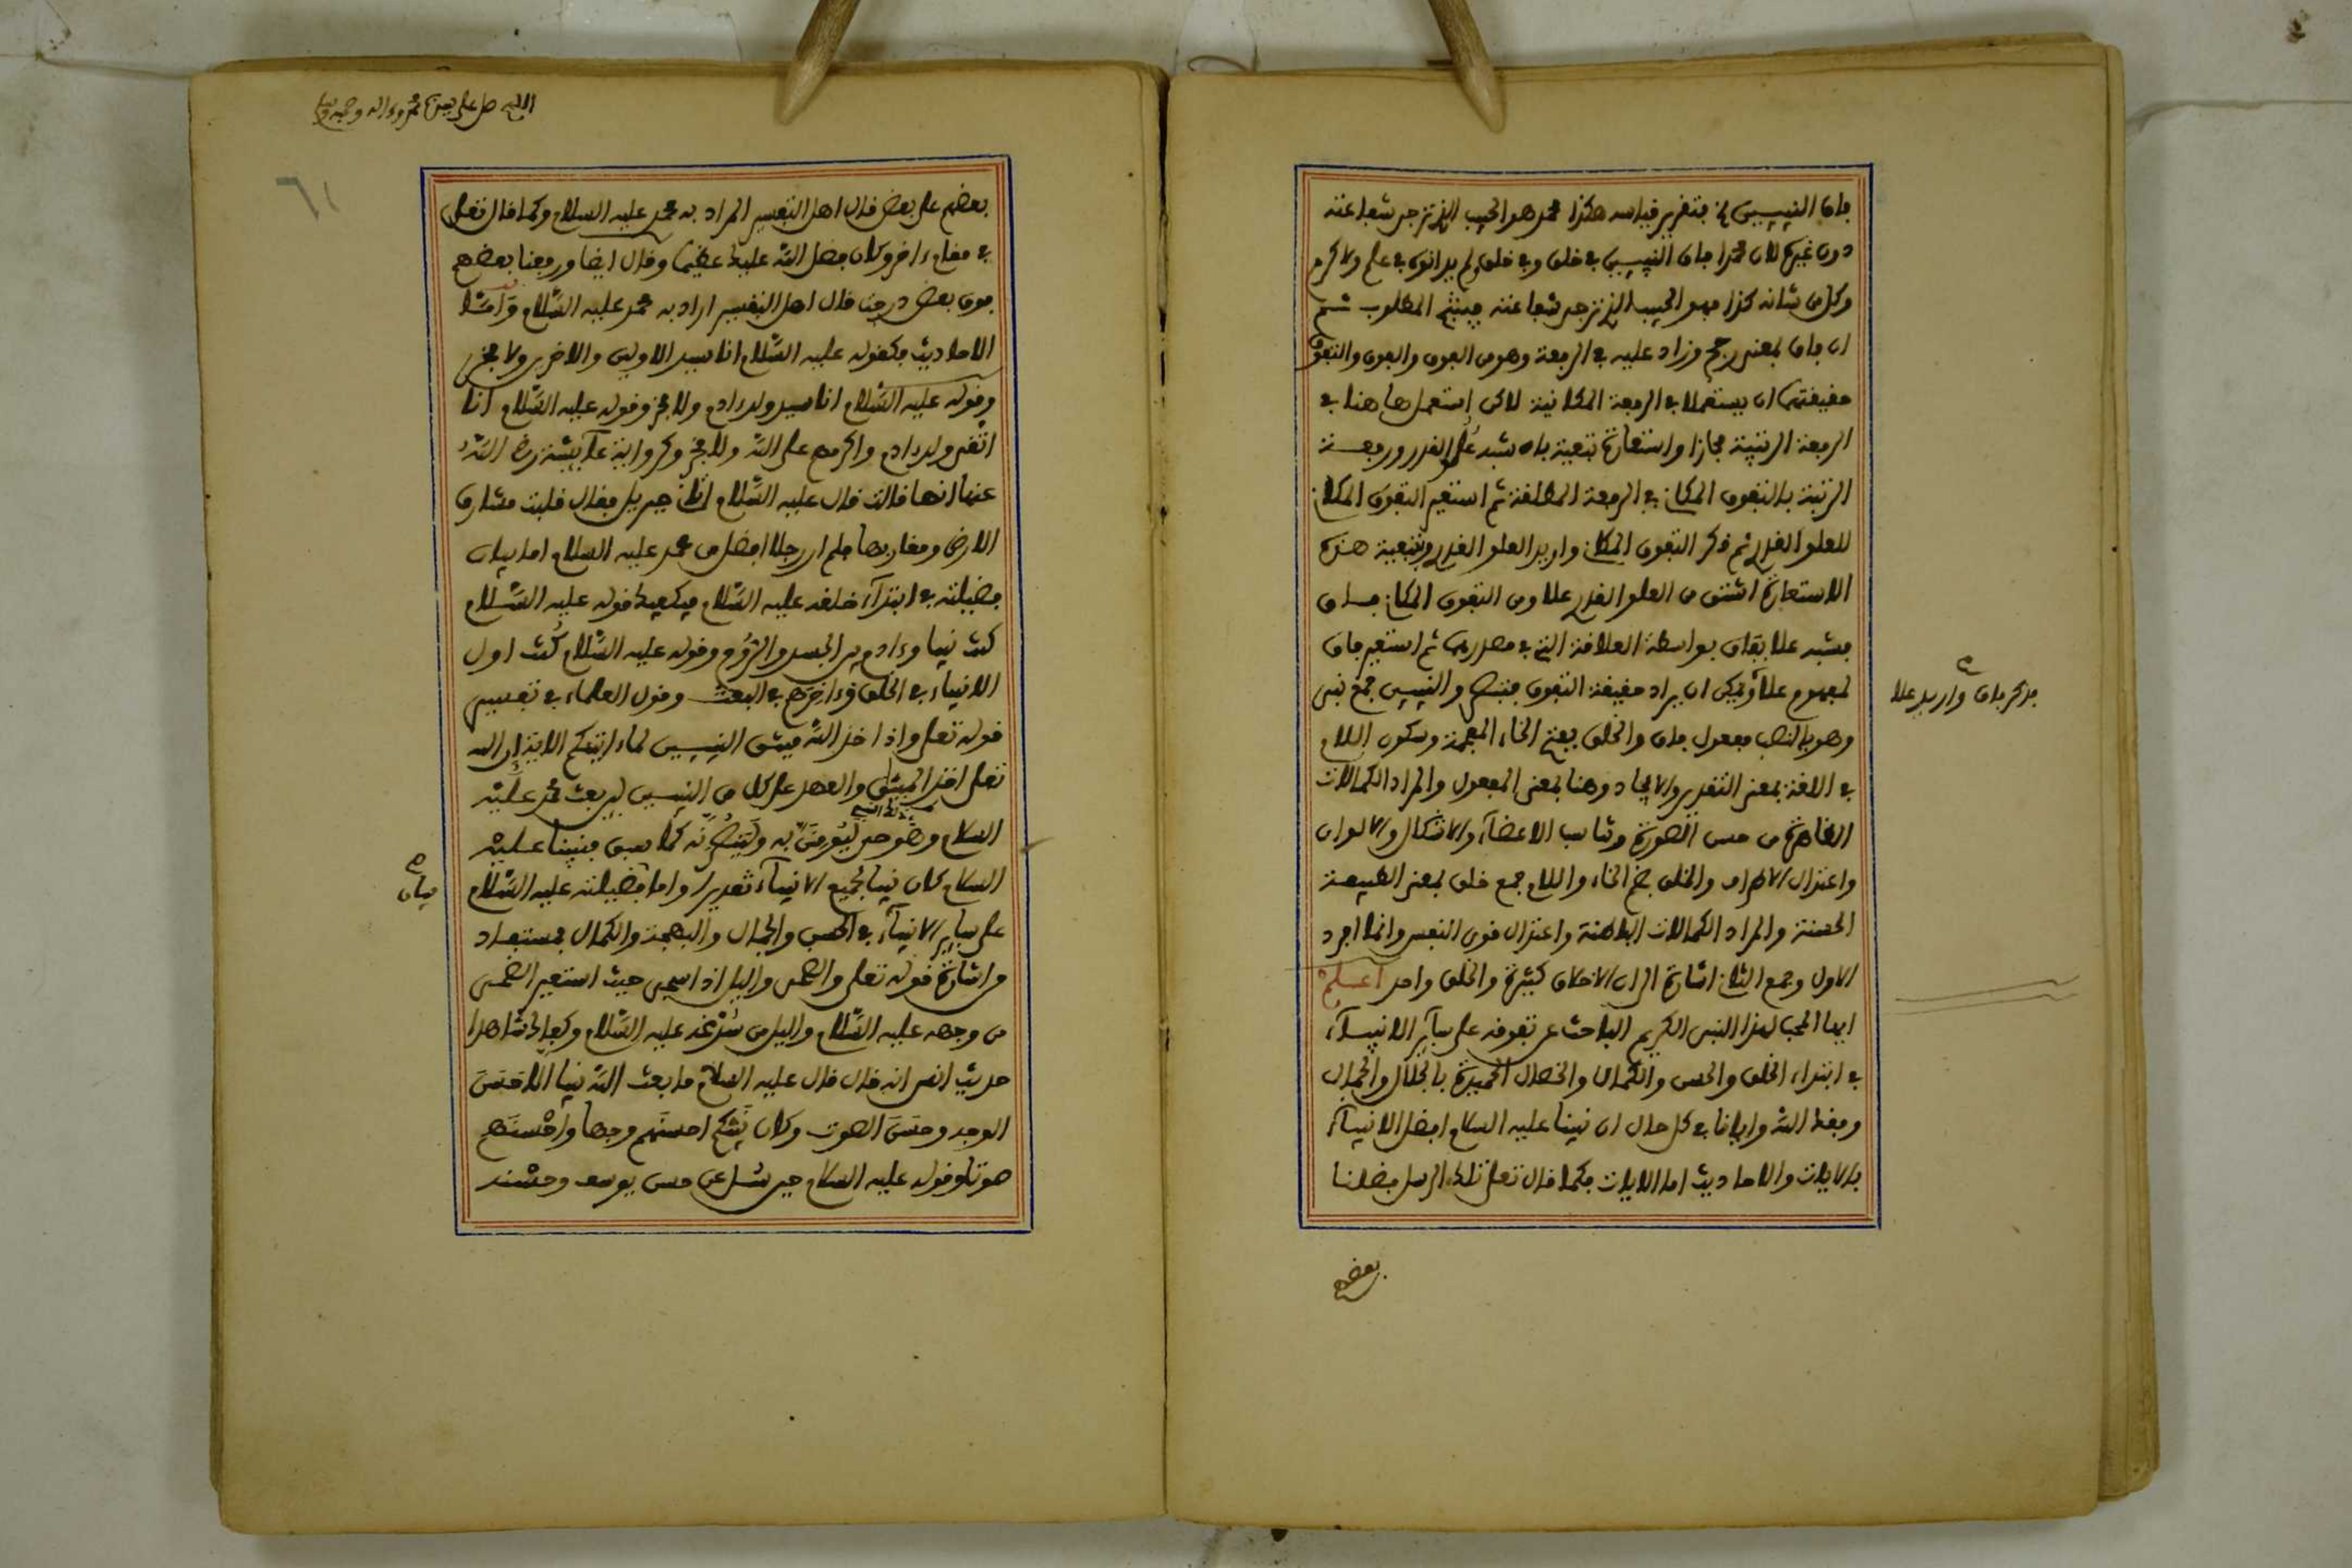 فاق النبيين الخ فتقرير قياسه هكذا محمد هو الحبيب الذي ترجى شفاعته
دون غيره لان محمدا فاق النبيين في خلق وفي خلق ولم يدانوه في علم ولا كرم
وكل من شانه كذا فهو الحبيب الذي ترجى شفاعته فينتج المطلوب ثم
ان فاق بمعنى رجح وزاد عليه في الرفعة وهو من الفوق والفوق والتفوق
حقيقتهما ان يستعملا في الرفعة المكانية لاكن استعمل ها هنا في
الرفعة الرتبية مجازا واستعارة تبعية بان شبه علو القدر ورفعة
الرتبة بالتفوق المكاني في الرفعة المطلقة ثم استعير التفوق المكاني
للعلو القدري ثم ذكر التفوق المكاني واريد العلو القدري وبتبعية هذه
الاستعارة اشتق من العلو القدري علا ومن التفوق المكاني فاق
فشبه علا بفاق بواسطة العلاقة التي في مصدريهما ثم استعير فاق
لمفهوم علا ويمكن ان يراد حقيقة التفوق والنبيين جمع نبي
فذكر فاق واريد علا
وهو بالنصب مفعول فاق والخلق بفتح الخاء المعجمة وسكون اللام
في اللغة بمعنى التقدير والايجاد وهنا بمعنى المفعول والمراد الكمالات
الظاهرة من حسن الصورة وتناسب الاعضاء والاشكال والالوان
واعتدال الاطراف والخلق بضم الخاء واللام جمع خلق بمعنى الطبيعة
الحسنة والمراد الكمالات الباطنة واعتدال قوى النفس وانما افرد
الاول وجمع الثاني اشارة الى ان الاخلاق كثيرة والخلق واحد اعلم
ايها المحب لهذا النبي الكريم الباحث عن تفوقه على سآئر الانبيآء
في ابتداء الخلق والحسن والكمال والخصال الحميدة بالجلال والجمال
وفقنا الله واياك في كل حال ان نبينا عليه السلام افضل الانبيآء
بالايات والاحاديث اما الايات فكما قال تعلى تلك الرسل فضلنا
بعضهم
اللهم صل على سيدنا محمد وءاله وصحبه وسلم
٦١
بعضهم على بعض قال اهل التفسير المراد به محمد عليه السلام وكما قال تعلى
في مقام ءاخر وكان فضل الله عليك عظيما وقال ايضا ورفعنا بعضهم
فوق بعض درجت قال اهل التفسير اراد به محمد عليه السلام وامـا
الاحاديث فكقوله عليه السلام انا سيد الاولين والاخرين ولا فخر
وقوله عليه السلام انا سيد ولد ءادم ولا فخر وقوله عليه السلام انا
اتقى ولد ءادم واكرمهم على الله ولا فخر وكرواية عآئشة رضي الله
عنها انها قالت قال عليه السلام اتاني جبريل فقال قلبت مشارق
الارض ومغاربها فلم ار رجلا افضل من محمد عليه السلام اما بيان
فضيلته في ابتدآء خلقه عليه السلام فيكفيك قوله عليه السلام
كنت نبيا وءادم بين الجسد والروح وقوله عليه السلام كنت اول
الانبياء في الخلق وءاخرهم في البعث وقول العلماء في تفسير
قوله تعلى واذ اخذ الله ميثق النبيين لما ءاتيتكم الاية ان الله
تعلى اخذ الميثق والعهد على كل من النبيين لئن بعث محمد عليه
السلام وهو حي ليؤمنن به ولينصرنه كما سبق فنبينا عليه
السلام كان نبيا لجميع الانبيآء تقديرا واما فضيلته عليه السلام
بيان
على سآئر الانبيآء في الحسن والجمال والبهجة والكمال فمستفاد
من اشارة قوله تعلى والضحى واليل اذا سجى حيث استعير الضحى
من وجهه عليه السلام واليل من شعره عليه السلام وكفاك شاهدا
حديث انس انه قال قال عليه السلام ما بعث الله نبيا الا حسن
الوجه وحسن الصوت وكان نبيكم احسنهم وجها واحسنهم
صوتا وقوله عليه السلام حين سئل عن حسن يوسف وحسنه